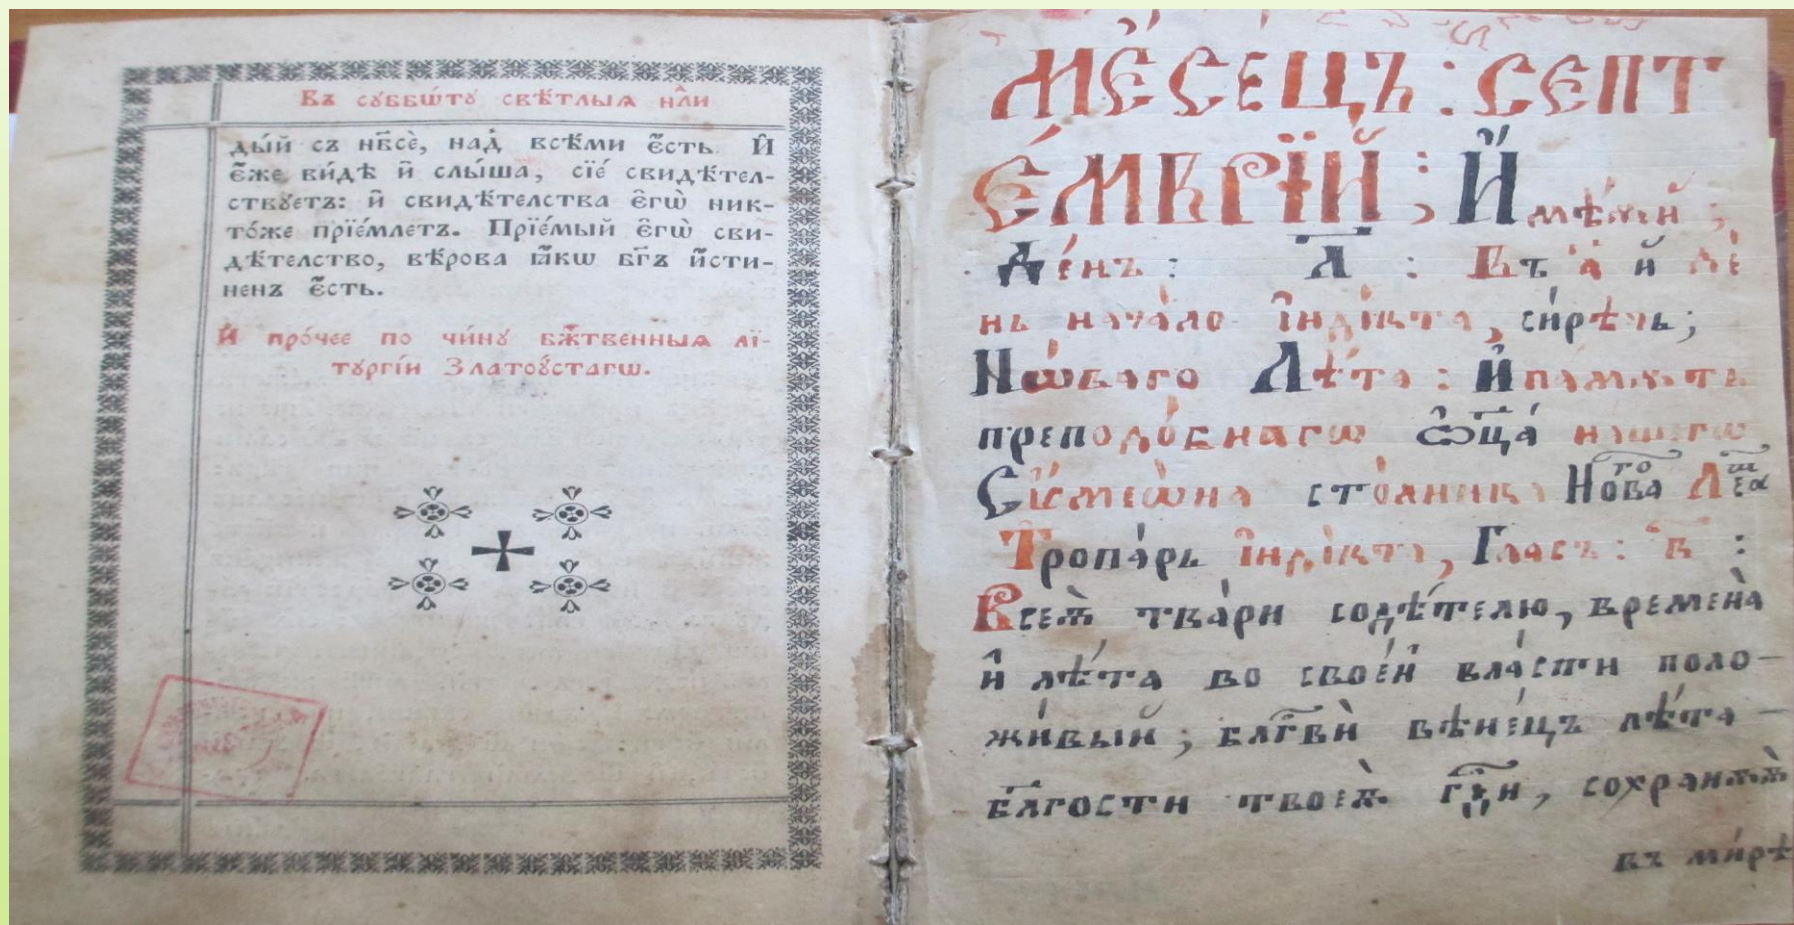 Въ суббѡ́тꙋ свѣ́тлыѧ нⷣли
ды́й съ нб҃сѐ, над̾ всѣ́ми є҆́сть. И҆
є҆́же ви́дѣ и҆ слы́ша, сїе́ свидѣ́тел-
ствꙋетъ: и҆ свидѣ́телства є҆гѡ̀ ник-
то́же прїе́млетъ. Прїе́мый є҆гѡ̀ сви-
дѣ́телство, вѣ́рова ꙗ҆́кѡ бг҃ъ и҆́сти-
ненъ є҆́сть.
И҆ про́чее по чи́нꙋ бж҃твенныѧ лї-
тꙋргі́и Златоꙋ́стагѡ.
МЕ́СЕЦЪ: СЕПТ
Е́МВРЇЙ; И҆
Де́нь: а҃ : Въ а҃ й де
нь нача́ло і҆нді́кта, си́рѣчь;
Нѡ́ваго Лѣ́та: и҆ память
преподо́бнагѡ ѻ҆ц҃а́ нашегѡ
Сѷмеѡ́на столпника Но́ва
Тропа́рь і҆нді́кта, Гласъ: в҃ :
Всеѧ̀ тва́ри содѣ́телю, времена̀
и҆ лѣ́та во свое́й вла́сти поло-
жи́вый; блг҃вѝ вѣне́цъ лѣ́та
бл҃гости твоеѧ̀ гдⷭ҇и, сохранѧѧ
въ ми́рѣ